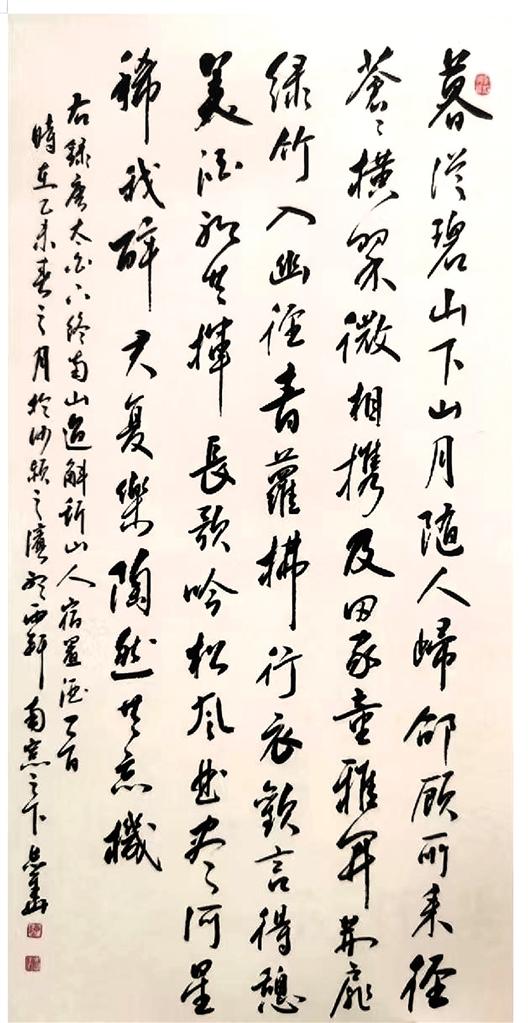 暮從碧山下山月随人歸郤顧所来徑
蒼〻横翠微相携及田家童雅開荊扉
绿竹入幽徑青蘿拂行衣歡言得憩
美酒聊共揮長歌吟松風曲尽河星
稀我醉君复樂陶然共忘機
右録唐太白下終南山過斛斯山人宿置酒一首
時在乙未春之月於沙颍之濱西軒南窓之下